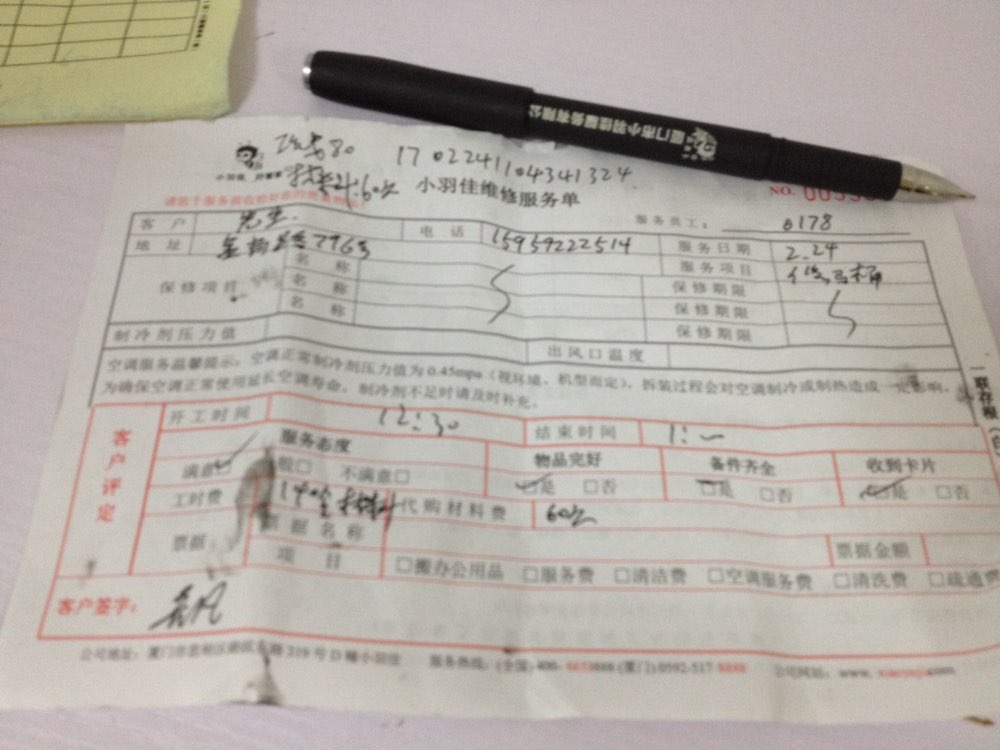 厦门市小羽佳服务有限公
80 17022411043413​24
材料:60元
小羽佳 好管家 小羽佳维修服务单 NO.
服务员工: 0178
客户 先生 电话 15959222514 服务日期 2.24
地址 7763 服务项目 修马桶
保修项目 名称 保修期限
名称 保修期限
名称 保修期限
制冷剂压力值 出风口温度
空调服务温馨提示:空调正常制冷剂压力值为0.45mpa(视环境、机型而定),拆装过程会对空调制冷或制热造成一定影响,
为确保空调正常使用延长空调寿命,制冷剂不足时请及时补充。
客户评定
开工时间 12:30 结束时间 1:
服务态度 物品完好 备件齐全 收到卡片
满意□ 般□ 不满意□ □是 □否 □是 □否 □是 □否
工时费 材料 代购材料费 60元
票据 票据名称 票据金额
项目 □搬办公用品 □服务费 □清洁费 □空调服务费 □清洗费 □疏通费
客户签字:
公司地址:厦门市思明区 319号D幢小羽佳 服务热线:(全国)400- (厦门)0592-517 8888 公司网址:www.